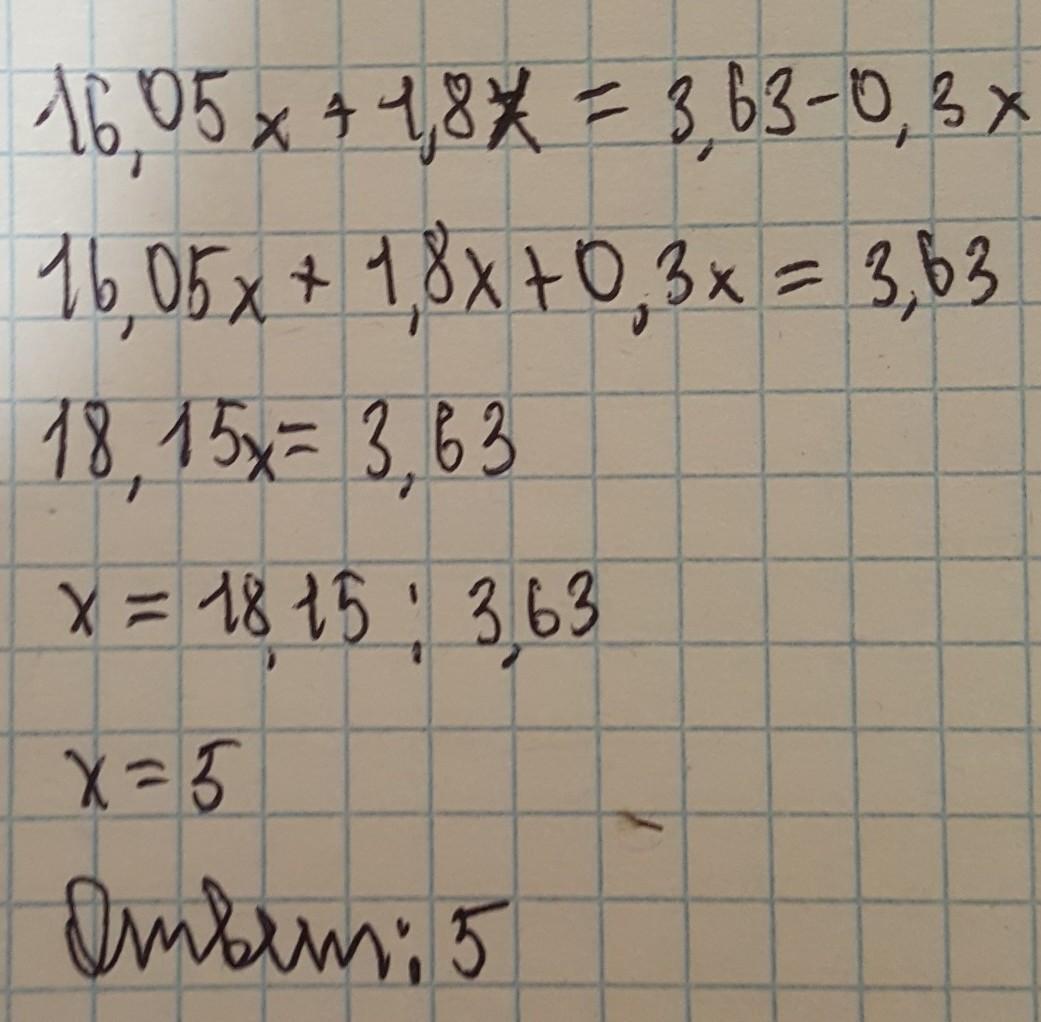 16,05x + 1,8x = 3,63-0,3x
16,05x + 1,8x+0,3x = 3,63
18,15x= 3,63
x = 18,15 : 3,63
x = 5
Ответ: 5